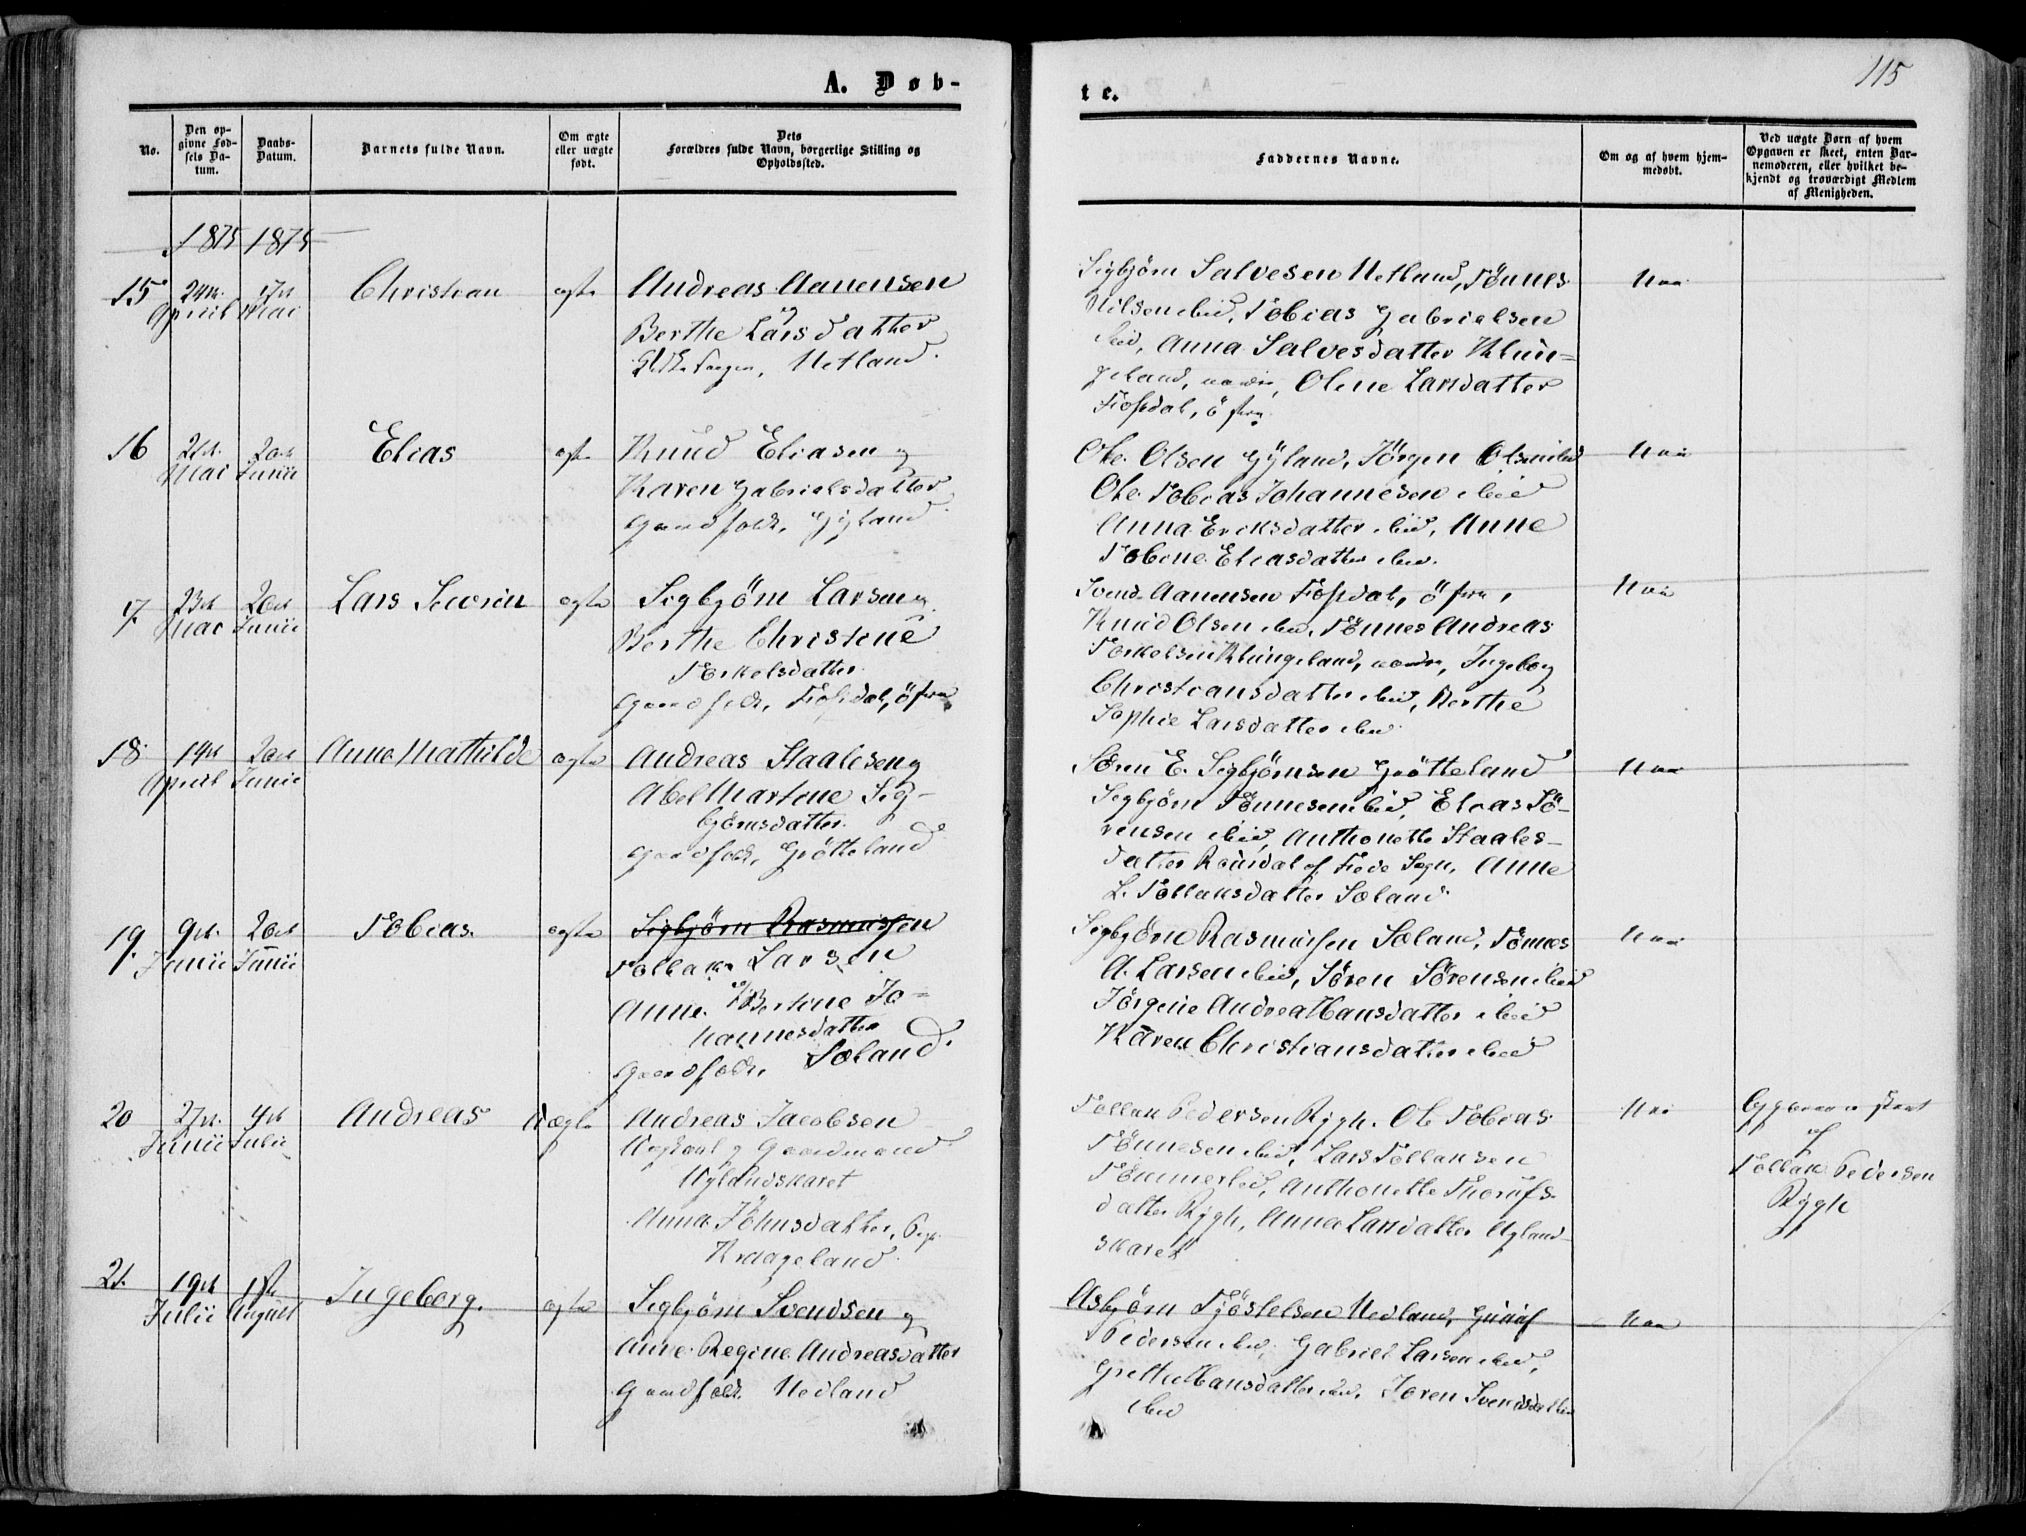 115
A. Døb-
te.
No.
Den op-
givne Fød-
sels Da-
tum.
Daabs-
Datum.
Barnets fulde Navn.
Om ægte
eller uægte
født.
Dets
Forældres fulde Navn, borgerlige Stilling og
Opholdssted.
Faddernes Navne.
Om og af hvem hjem-
medøbt.
Ved uægte Børn af hvem
Opgaven er skeet, enten Bar-
nemoderen, eller hvilket be-
kjendt og troværdigt Medlem
af Menigheden.
1875 1875
15
24de
April
17de
Mai
Christian
ægte
Andreas Aanensen
og
Berthe Larsdatter
Netland.
Sigbjørn Salvesen Netland, Tönnes
Nilsen ibid, Tobias Gabrielsen
ibid, Anna Salvesdatter Klun-
geland, nordre, Olene Larsdatter
Fossdal, ö fre
16
21de
Mai
20de
Junii
Elias
ægte
Knud Eliasen og
Karen Gabrielsdatter
Gaardfolk, Gyland
Ole Olsen Gyland, Jörgen Olsen ibid
Ole Tobias Johannesen ibid
Anna Eriksdatter ibid, Anne
Tobine Eliasdatter ibid.
17.
23de
Mai
20de
Junii
Lars Severin
ægte
Sigbjörn Larsen og
Berthe Christine
Torkelsdatter
Gaardfolk, Fossdal, ö fre
Svend Aanensen Fossdal, ö fre,
Knud Olsen ibid, Tönnes Andreas
Torkelsen Klungeland, nordre, Ingeborg
Christiansdatter ibid, Berthe
Sophie Larsdatter ibid
Nei
18.
19de
April
20de
Junii
Anna Mathilde
ægte
Andreas Staalesen og
Abel Martine Sig-
bjørnsdatter
Gaardfolk, Grötteland
Sören E. Sigbjørnsen Grötteland
Sigbjørn Tönnesen ibid, Elias Sö-
rensen ibid, Anthonette Staales-
datter Rördal af Fede Sogn, Anne
L. Tollaksdatter Søland.
Nei
19.
9de
Junii
20de
Junii
Tobias.
ægte
Sigbjørn Rasmussen
Tollak Larsen
og
Anne Bertine Jo-
hannesdatter
Gaardfolk, Søland.
Sigbjørn Rasmussen Søland, Tönnes
A. Larsen ibid, Sören Sörensen ibid
Jörgine Andrea Hansdatter ibid
Karen Christiansdatter ibid
Nei
20
27de
Junii
4de
Julii
Andreas
Uægte
Andreas Jacobsen
Ungkarl og Gaardmand
Uglandskaret
Anna Johnsdatter, Pige
Kraageland.
Tollak Pedersen Rygh, Ole Tobias
Tönnesen ibid, Lars Tollaksen
Tömmerlid, Anthonette Thorufs-
datter Rygh, Anna Larsdatter Ugland-
skaret
Nei
Opgaven er skeet
af
Tollak Pedersen
Rygh
21.
19de
Julii
1ste
August
Ingeborg.
ægte
Sigbjørn Svendsen og
Anne Regine Andreasdatter
Gaardfolk Nedland
Asbjørn Tjöstelsen Nedland, Gunuf
Pedersen ibid, Gabriel Larsen ibid,
Grethe Hansdatter ibid, Joren Svendsdatter
ibid
Nei